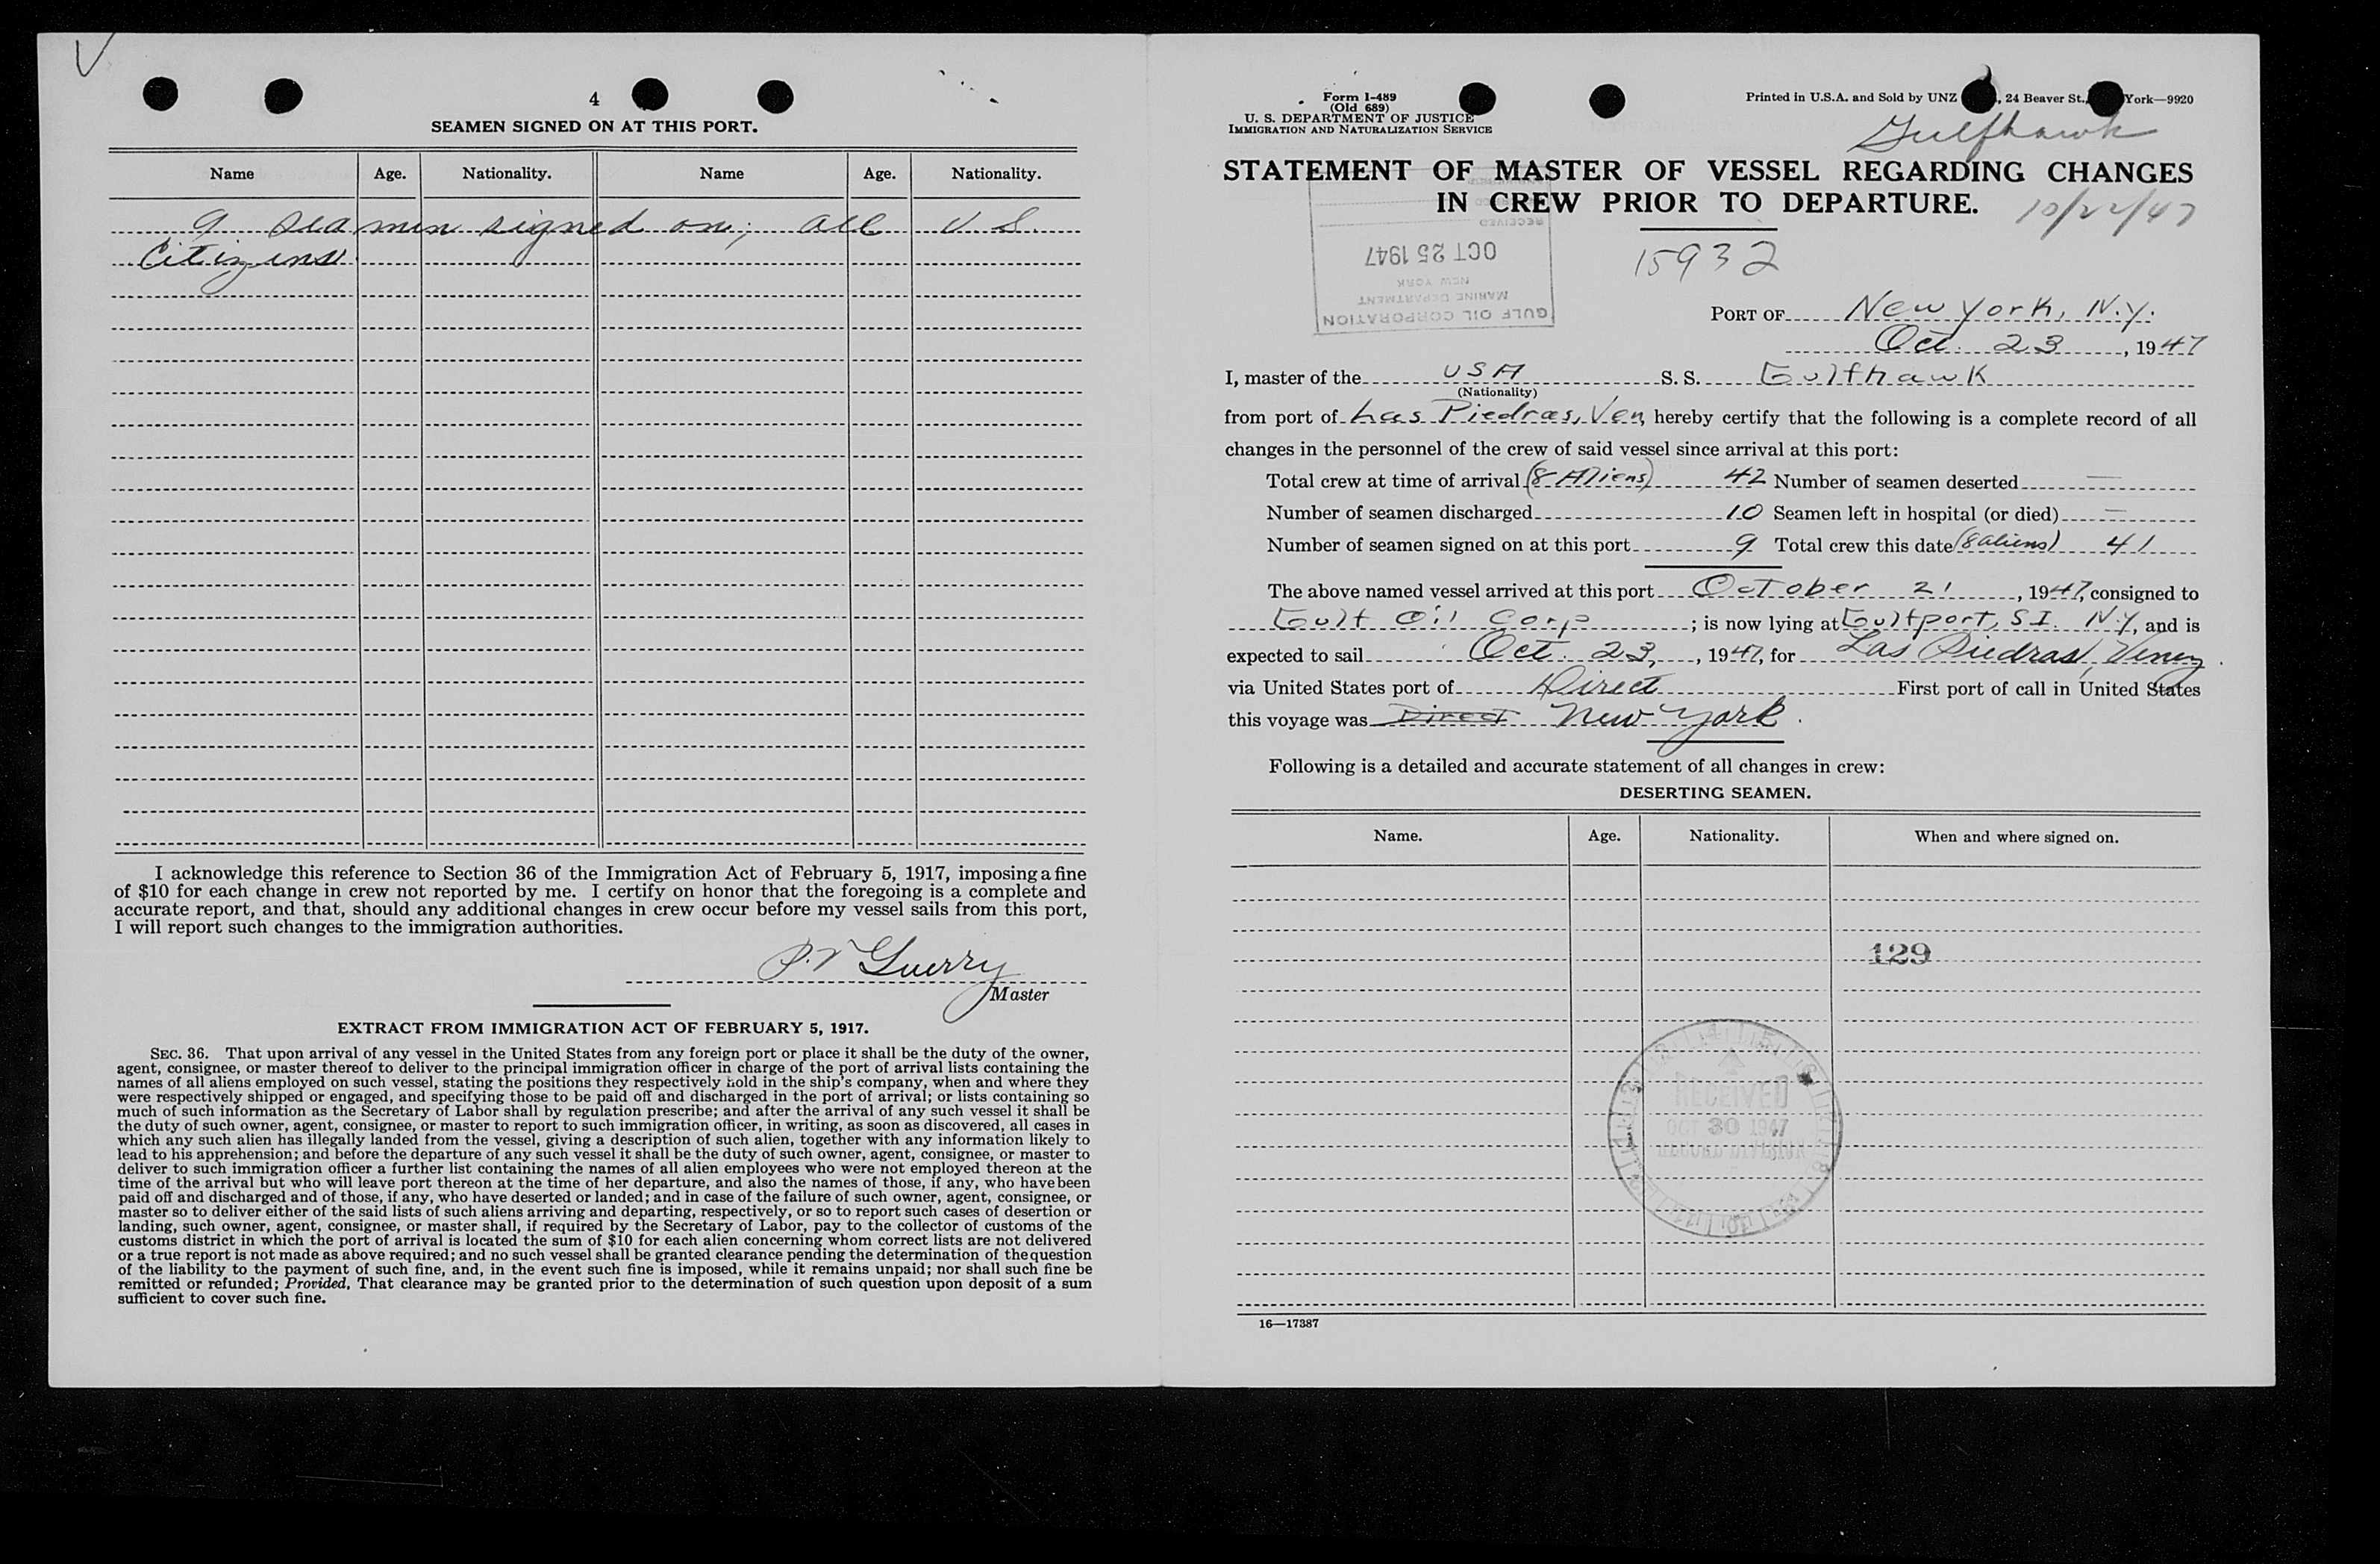 4
SEAMEN SIGNED ON AT THIS PORT.
Name Age. Nationality. Name Age. Nationality.
9 seamen signed on; all U. S.
Citizens
I acknowledge this reference to Section 36 of the Immigration Act of February 5, 1917, imposing a fine
of $10 for each change in crew not reported by me. I certify on honor that the foregoing is a complete and
accurate report, and that, should any additional changes in crew occur before my vessel sails from this port,
I will report such changes to the immigration authorities.
Guerry
Master
EXTRACT FROM IMMIGRATION ACT OF FEBRUARY 5, 1917.
SEC. 36. That upon arrival of any vessel in the United States from any foreign port or place it shall be the duty of the owner,
agent, consignee, or master thereof to deliver to the principal immigration officer in charge of the port of arrival lists containing the
names of all aliens employed on such vessel, stating the positions they respectively hold in the ship's company, when and where they
were respectively shipped or engaged, and specifying those to be paid off and discharged in the port of arrival; or lists containing so
much of such information as the Secretary of Labor shall by regulation prescribe; and after the arrival of any such vessel it shall be
the duty of such owner, agent, consignee, or master to report to such immigration officer, in writing, as soon as discovered, all cases in
which any such alien has illegally landed from the vessel, giving a description of such alien, together with any information likely to
lead to his apprehension; and before the departure of any such vessel it shall be the duty of such owner, agent, consignee, or master to
deliver to such immigration officer a further list containing the names of all alien employees who were not employed thereon at the
time of the arrival but who will leave port thereon at the time of her departure, and also the names of those, if any, who have been
paid off and discharged and of those, if any, who have deserted or landed; and in case of the failure of such owner, agent, consignee, or
master so to deliver either of the said lists of such aliens arriving and departing, respectively, or so to report such cases of desertion or
landing, such owner, agent, consignee, or master shall, if required by the Secretary of Labor, pay to the collector of customs of the
customs district in which the port of arrival is located the sum of $10 for each alien concerning whom correct lists are not delivered
or a true report is not made as above required; and no such vessel shall be granted clearance pending the determination of the question
of the liability to the payment of such fine, and, in the event such fine is imposed, while it remains unpaid; nor shall such fine be
remitted or refunded; Provided, That clearance may be granted prior to the determination of such question upon deposit of a sum
sufficient to cover such fine.
Form I-489
(Old 689)
U. S. DEPARTMENT OF JUSTICE
IMMIGRATION AND NATURALIZATION SERVICE
Printed in U.S.A. and Sold by UNZ , 24 Beaver St., York—9920
Gulfhawk
STATEMENT OF MASTER OF VESSEL REGARDING CHANGES
IN CREW PRIOR TO DEPARTURE.
10/22/47
15932
GULF OIL CORPORATION
MARINE DEPARTMENT
NEW YORK
OCT 25 1947
RECEIVED
PORT OF New York, N.Y.
Oct. 23, 1947
I, master of the USA S. S. Gulfhawk
(Nationality)
from port of Las Piedras, Ven, hereby certify that the following is a complete record of all
changes in the personnel of the crew of said vessel since arrival at this port:
Total crew at time of arrival (8 Aliens) 42 Number of seamen deserted —
Number of seamen discharged 10 Seamen left in hospital (or died) —
Number of seamen signed on at this port 9 Total crew this date (8 aliens) 41
The above named vessel arrived at this port October 21, 1947, consigned to
Gulf Oil Corp; is now lying at Gulfport, S.I. N.Y, and is
expected to sail Oct. 23, 1947, for Las Piedras, Venez.
via United States port of Direct First port of call in United States
this voyage was Direct New York.
Following is a detailed and accurate statement of all changes in crew:
DESERTING SEAMEN.
Name. Age. Nationality. When and where signed on.
129
RECEIVED
OCT 30 1947
RECORD DIVISION
16—17387